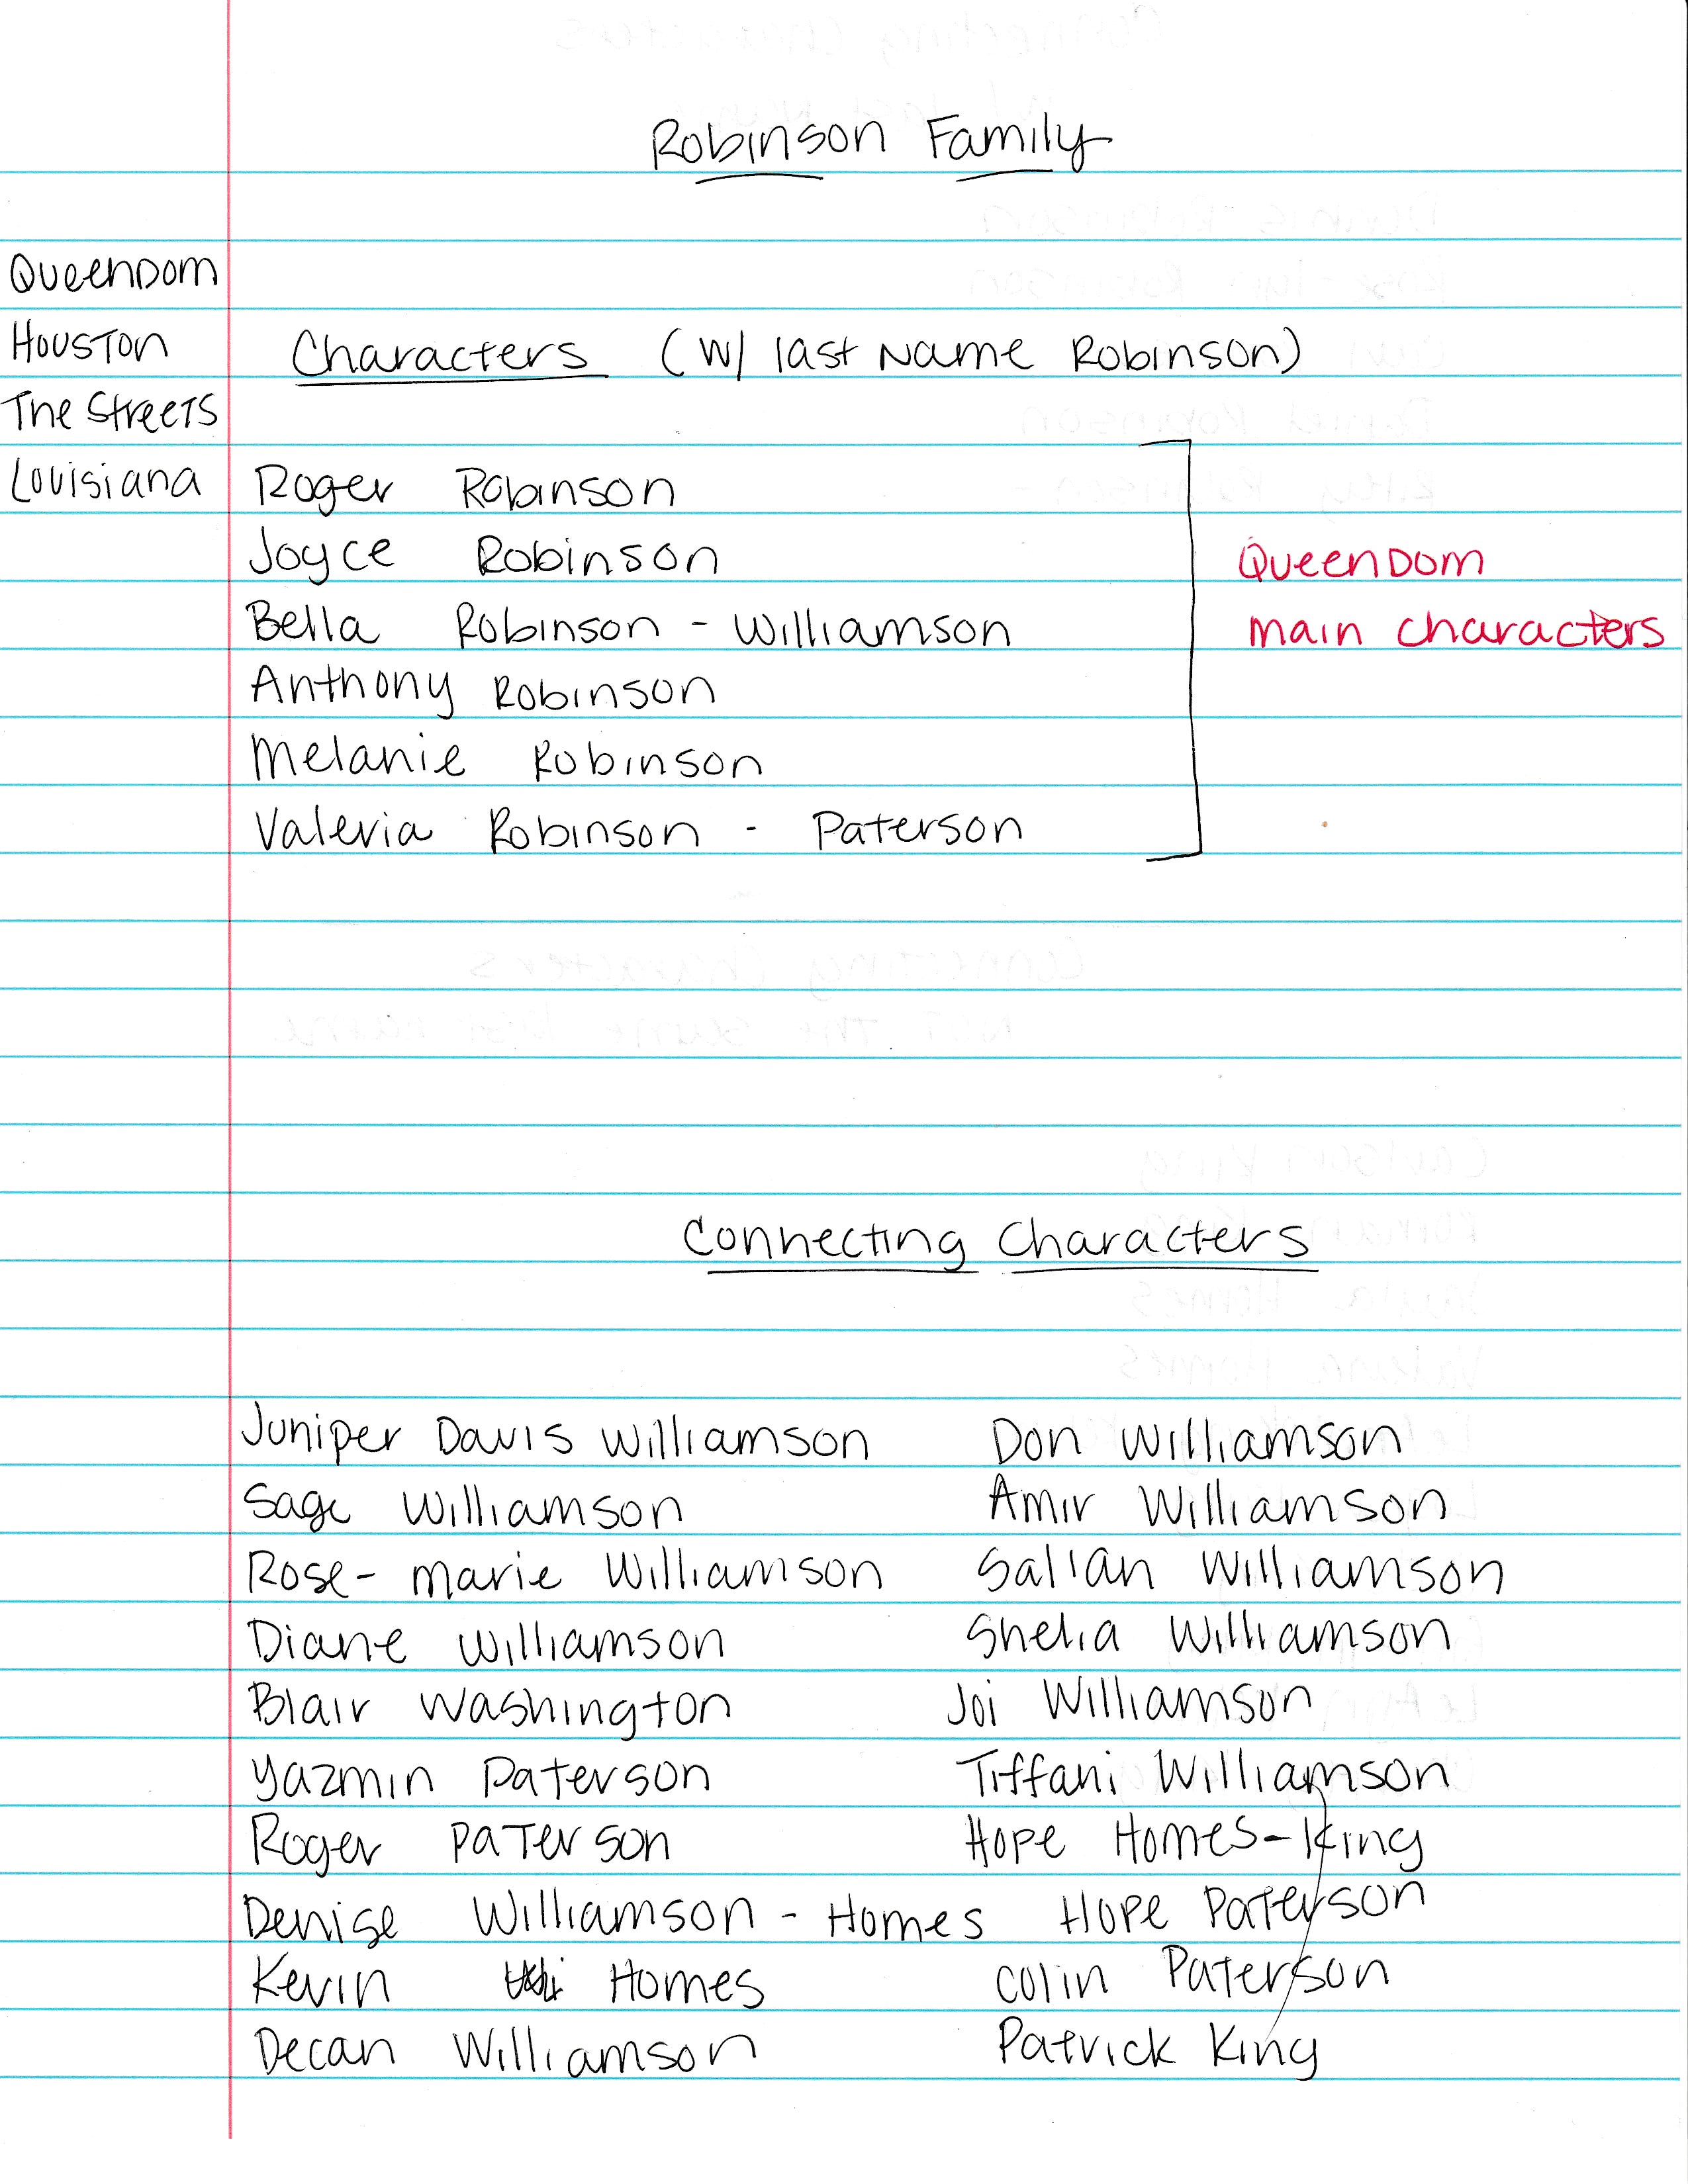 Robinson Family
Queendom
Houston
Characters (w/ last Name Robinson)
The Streets
Louisiana
Roger Robinson
Joyce Robinson
Bella Robinson - Williamson
Anthony Robinson
Melanie Robinson
Valeria Robinson - Paterson
Queendom
main characters
Connecting Characters
Juniper Davis Williamson
Sage Williamson
Rose-marie Williamson
Diane Williamson
Blair Washington
Yazmin Paterson
Roger Paterson
Denise Williamson - Homes
Kevin Homes
Decan Williamson
Don Williamson
Amir Williamson
Salian Williamson
Shelia Williamson
Joi Williamson
Tiffani Williamson
Hope Homes-King
Hope Paterson
Colin Paterson
Patrick King